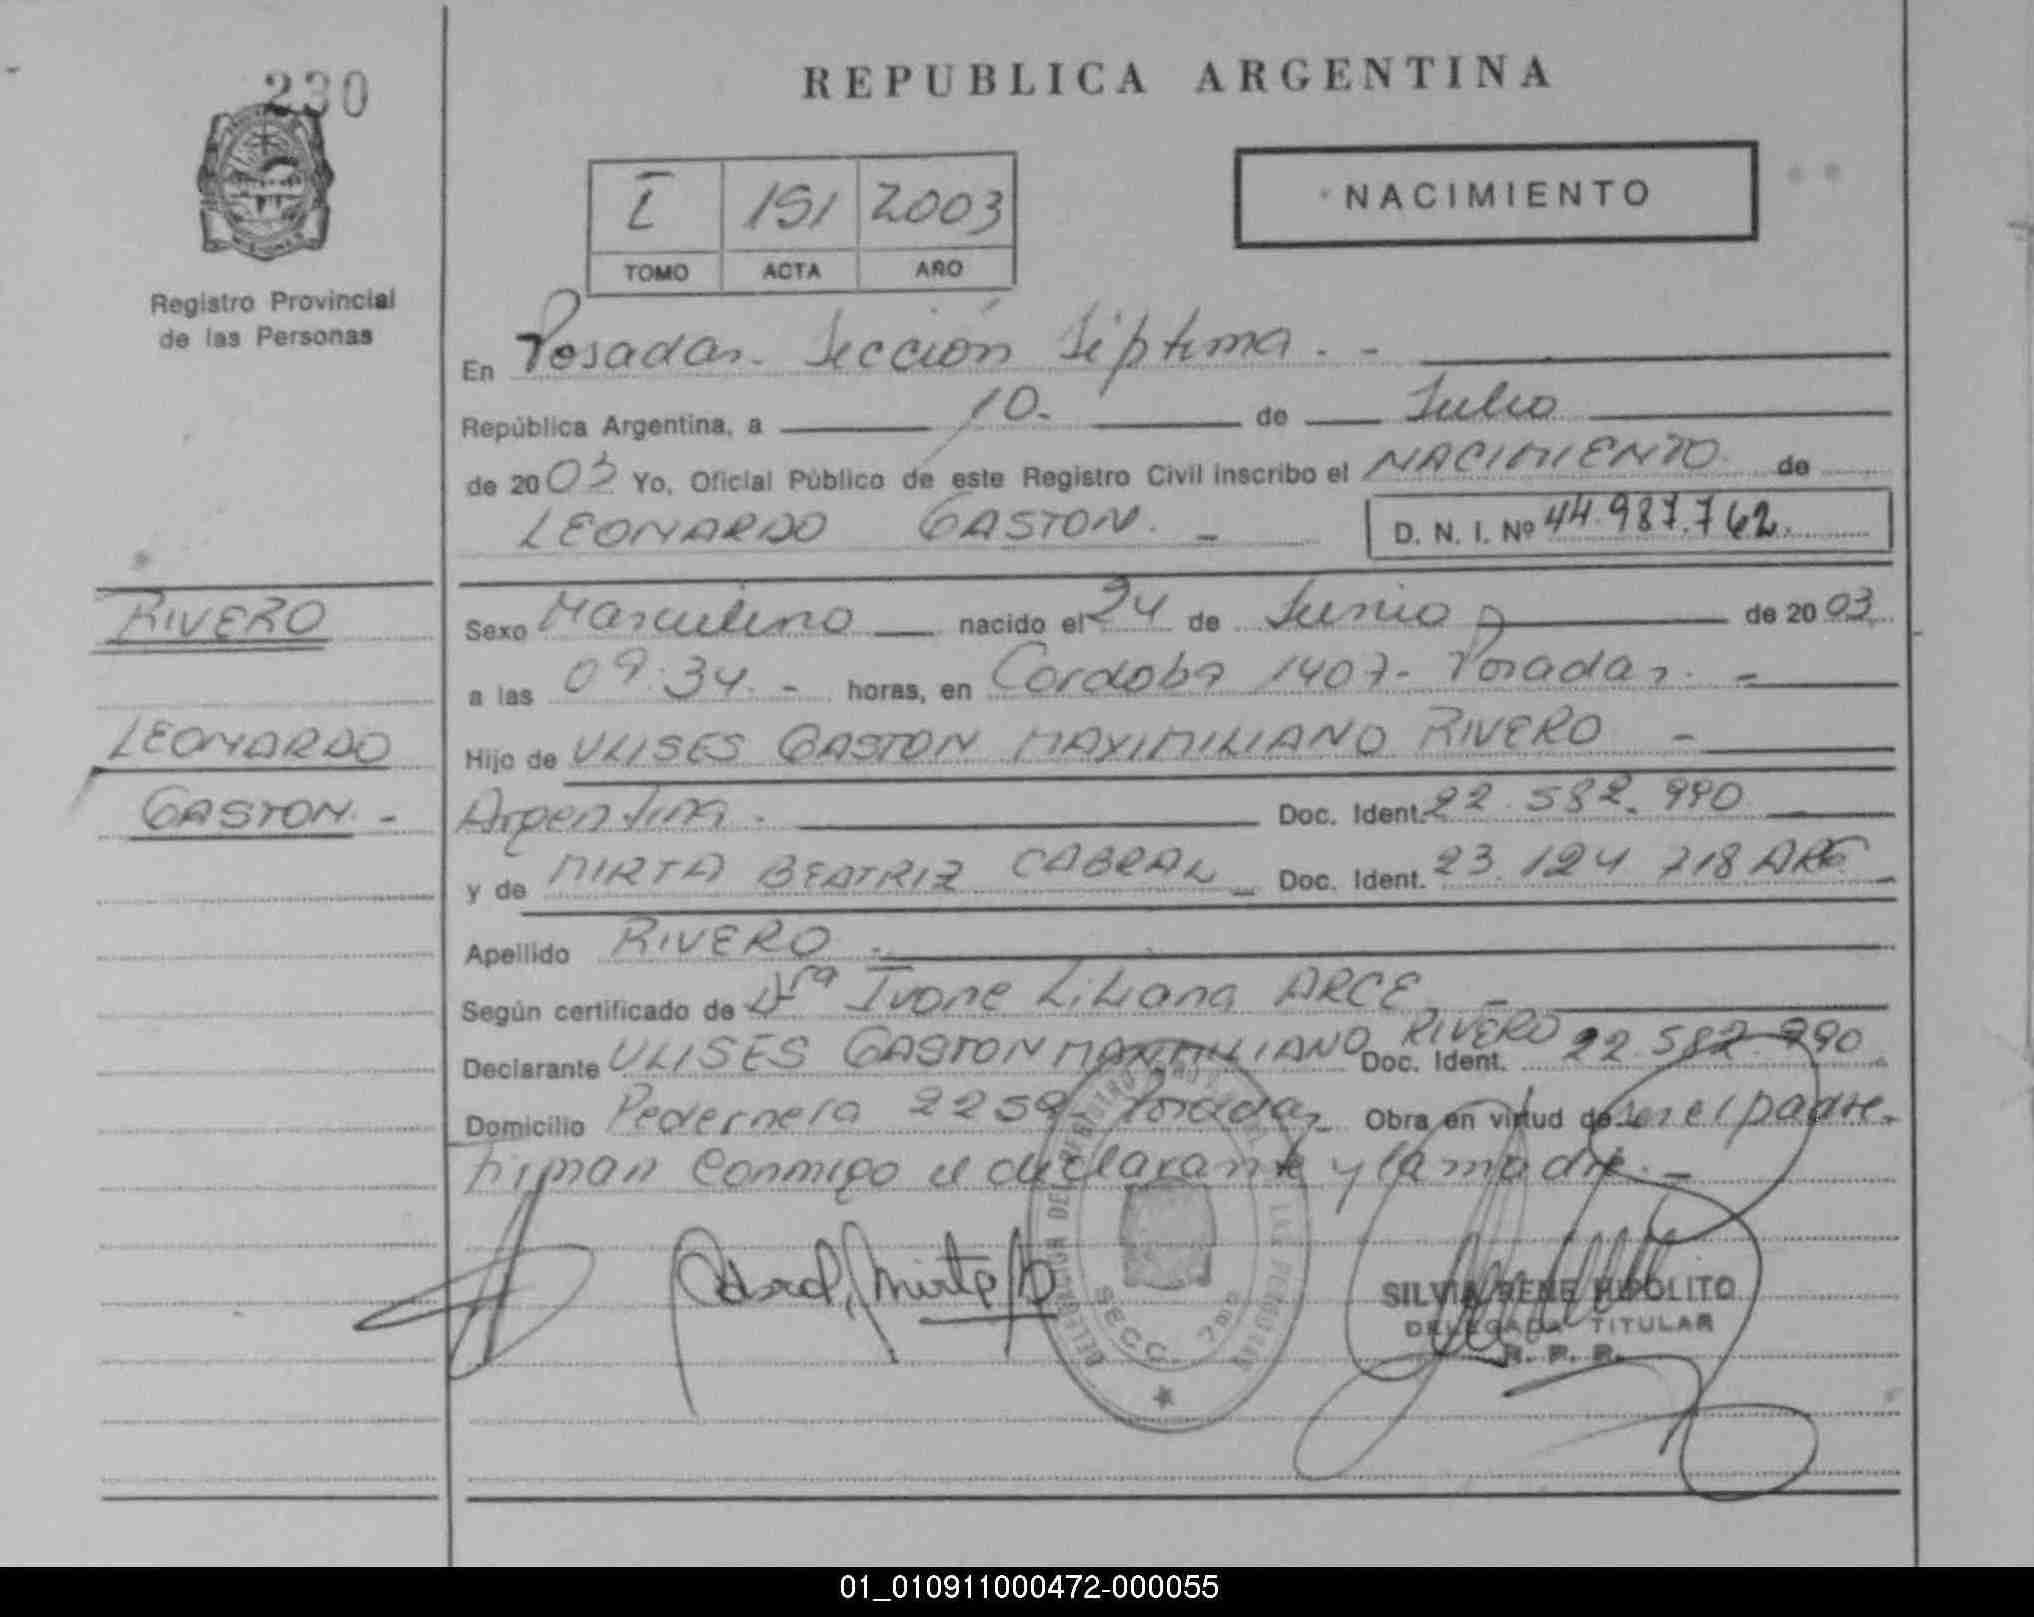 230
REPUBLICA ARGENTINA
I 151 2003
TOMO ACTA AÑO
NACIMIENTO
Registro Provincial
de las Personas
En Posadas. Sección Séptima. -
República Argentina, a 10. de Julio
de 2003 Yo, Oficial Público de este Registro Civil inscribo el NACIMIENTO de
LEONARDO GASTON. - D. N. I. Nº 44.987.762.
RIVERO
LEONARDO
GASTON. -
Sexo Masculino nacido el 24 de Junio de 2003
a las 09:34. - horas, en Cordoba 1407- Posadas. -
Hijo de ULISES GASTON MAXIMILIANO RIVERO -
Argentina. Doc. Ident. 22.582.990
y de MIRTA BEATRIZ CABRAL Doc. Ident. 23.124.718 ARG
Apellido RIVERO.
Según certificado de Dra Ivone Liliana ARCE -
Declarante ULISES GASTON MAXIMILIANO RIVERO Doc. Ident. 22.582.990
Domicilio Pedernera 2259 Posadas Obra en virtud de ser el padre.
firman conmigo el declarante y la madre. -
Cabral, Mirta B
DELEGACION DEL REGISTRO DE LAS PERSONAS
SECC. 7ma
SILVIA RENE HIPOLITO
DELEGADA TITULAR
R. P. P.
01_010911000472-000055